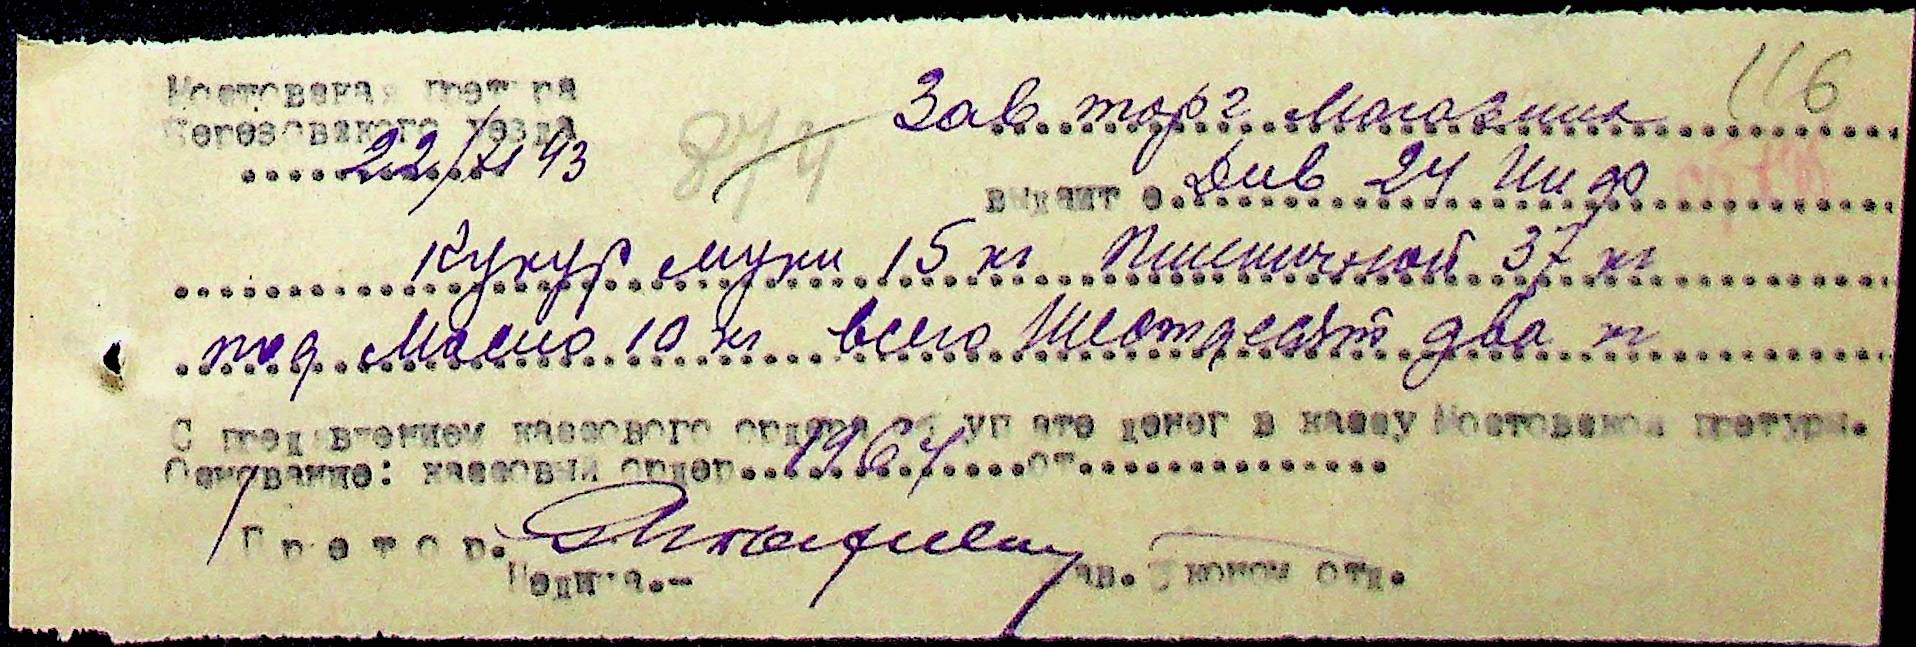 Мостовская претура
Березовского уезда
22/XI 43
874
116
Зав торг Магазина
выдайте Див 24 Пиф
Кукур муки 15 кг Пшеничной 37 кг
под Масло 10 кг всего Шестдесят два кг
С предявлением кассового ордера об уплате денег в кассу Мостовской претуры.
Основание: кассовый ордер 1964 от
Претор.
Зав. Эконом отд.